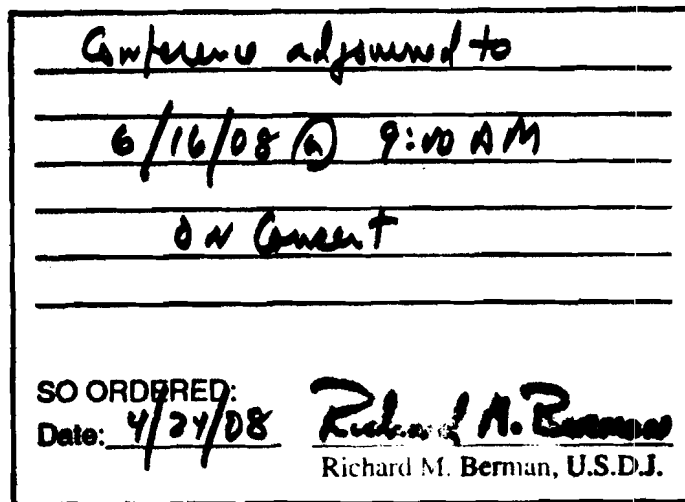 Conference adjourned to
6/16/08 @ 9:00 AM
on Consent
SO ORDERED:
Date: 4/24/08 Richard M. Berman
Richard M. Berman, U.S.D.J.